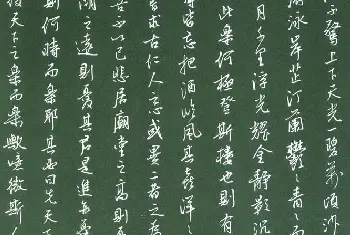 不驚上下天光一碧萬頃沙
游泳岸芷汀蘭鬱〻青〻而
月千里浮光耀金靜影沉
此樂何極登斯樓也則有
偕忘把酒臨風其喜洋〻
嘗求古仁人之心或異二者之為
以己悲居廟堂之高則
湖之遠則憂其君是進亦憂
則何時而樂耶其必曰先天下
天下之樂而樂歟噫微斯人